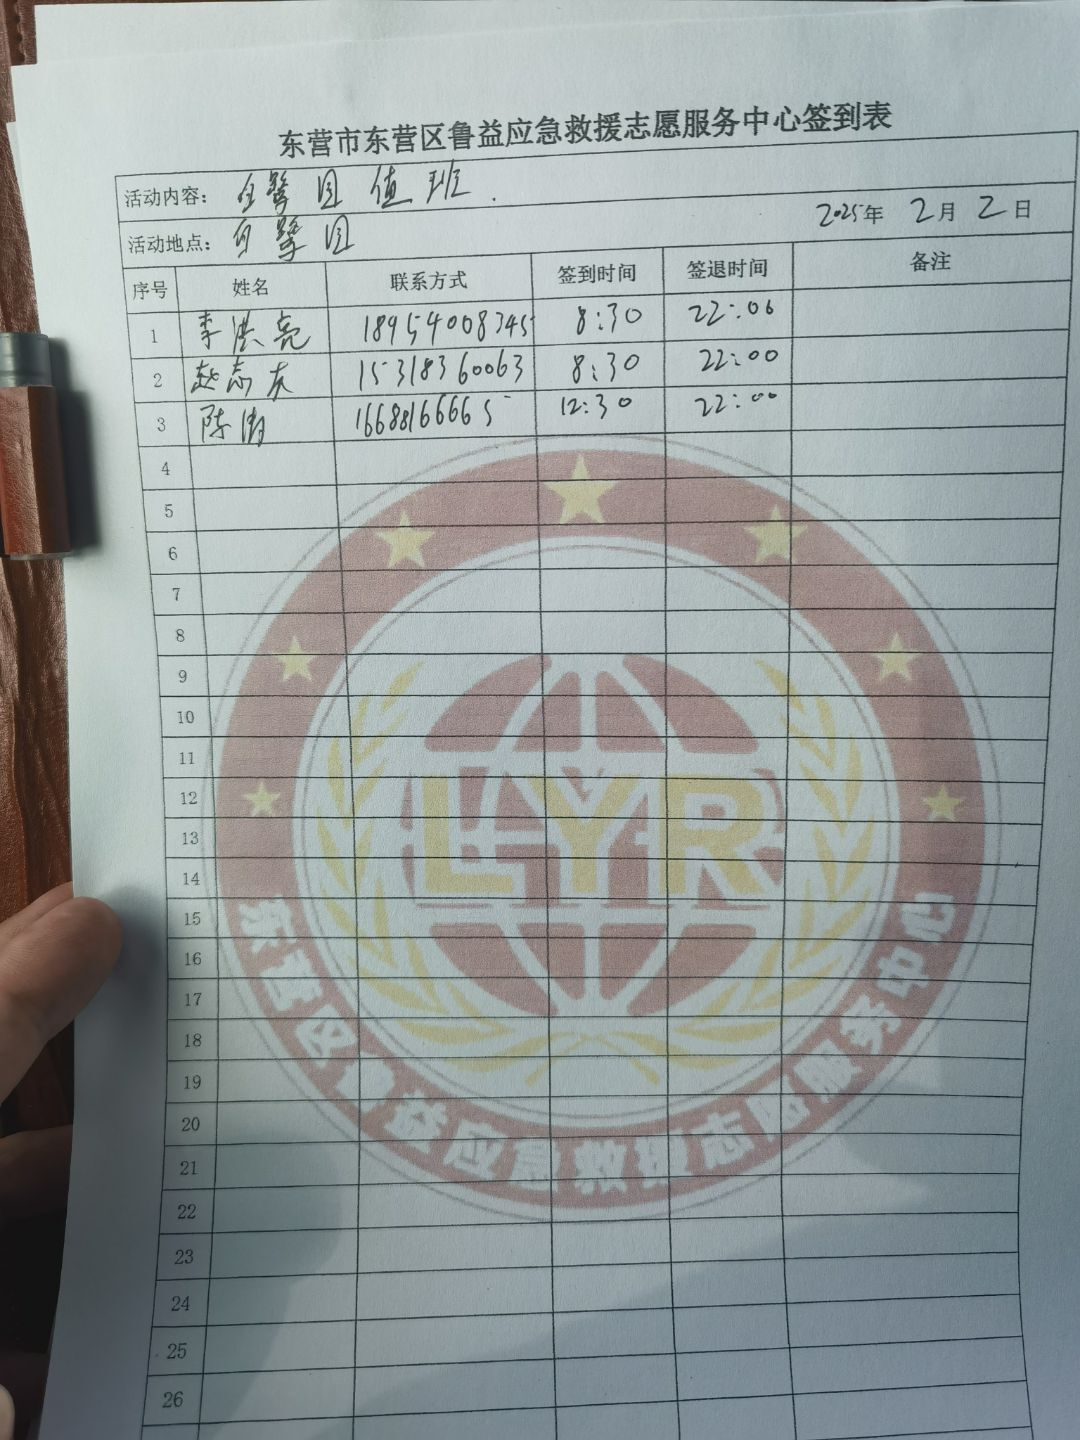 东营市东营区鲁益应急救援志愿服务中心签到表
活动内容： 园 值 班 .
活动地点： 园 2025年 2月 2日
序号 姓名 联系方式 签到时间 签退时间 备注
1 李洪亮 18954008345 8:30 22:00
2 赵志友 15318360063 8:30 22:00
3 陈涛 16688166665 12:30 22:00
4
5
6
7
8
9
10
11
12
13
14
15
16
17
18
19
20
21
22
23
24
25
26
LYR
东营区鲁益应急救援志愿服务中心